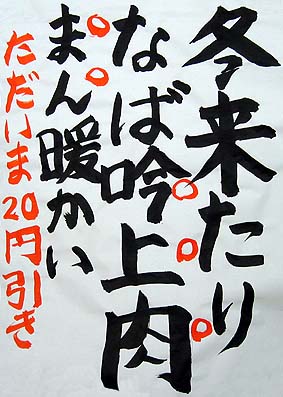 冬来たり
なば吟上肉
まん暖かい
ただいま20円引き